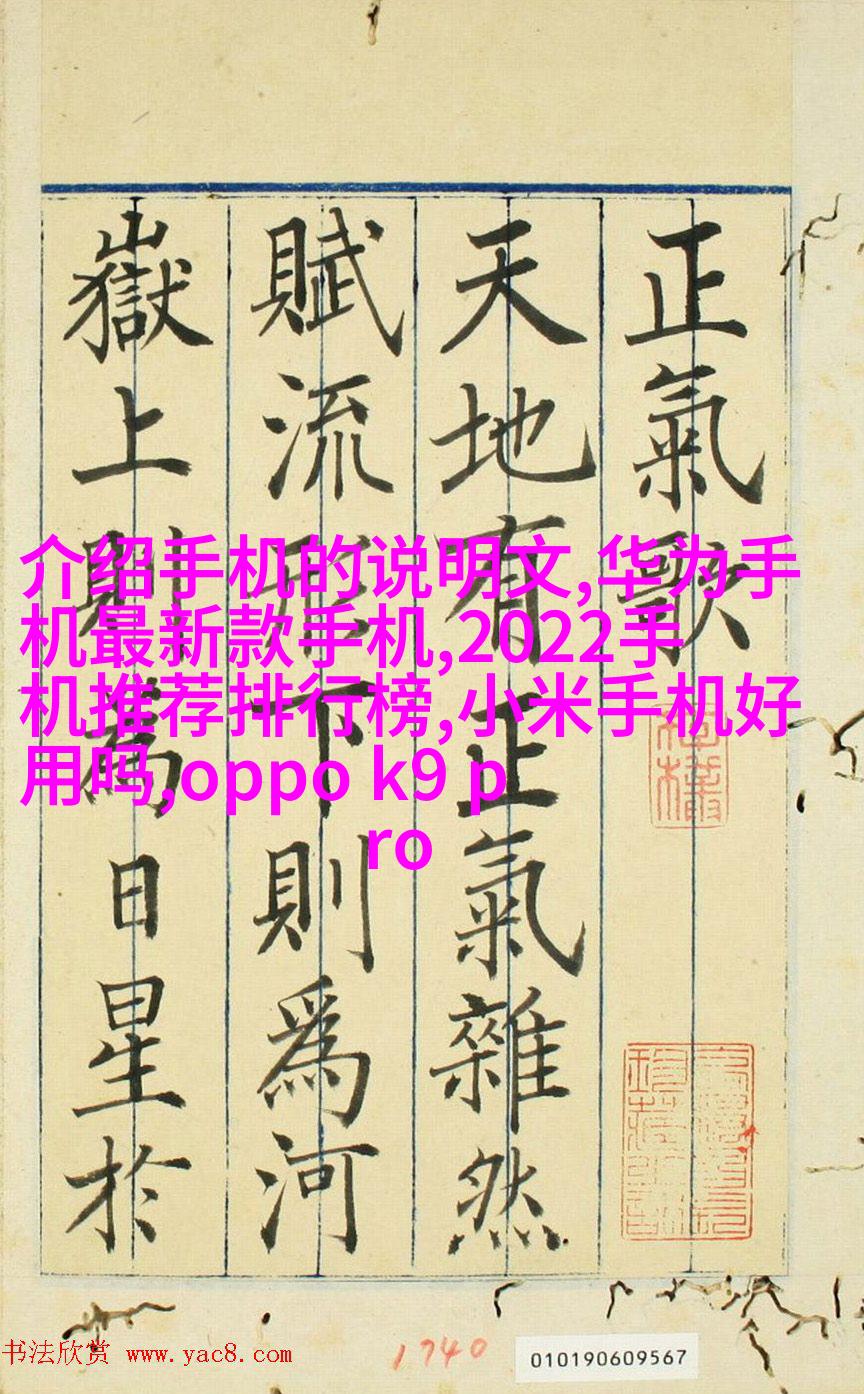 正氣歌
天地有正氣雜然
賦流形下則爲河
嶽上則為日星於
介绍手机的说明文,华为手
机最新款手机,2022手
机推荐排行榜,小米手机好
用吗,oppo k9 p
ro
书法欣赏 www.yac8.com
1740
010190609567